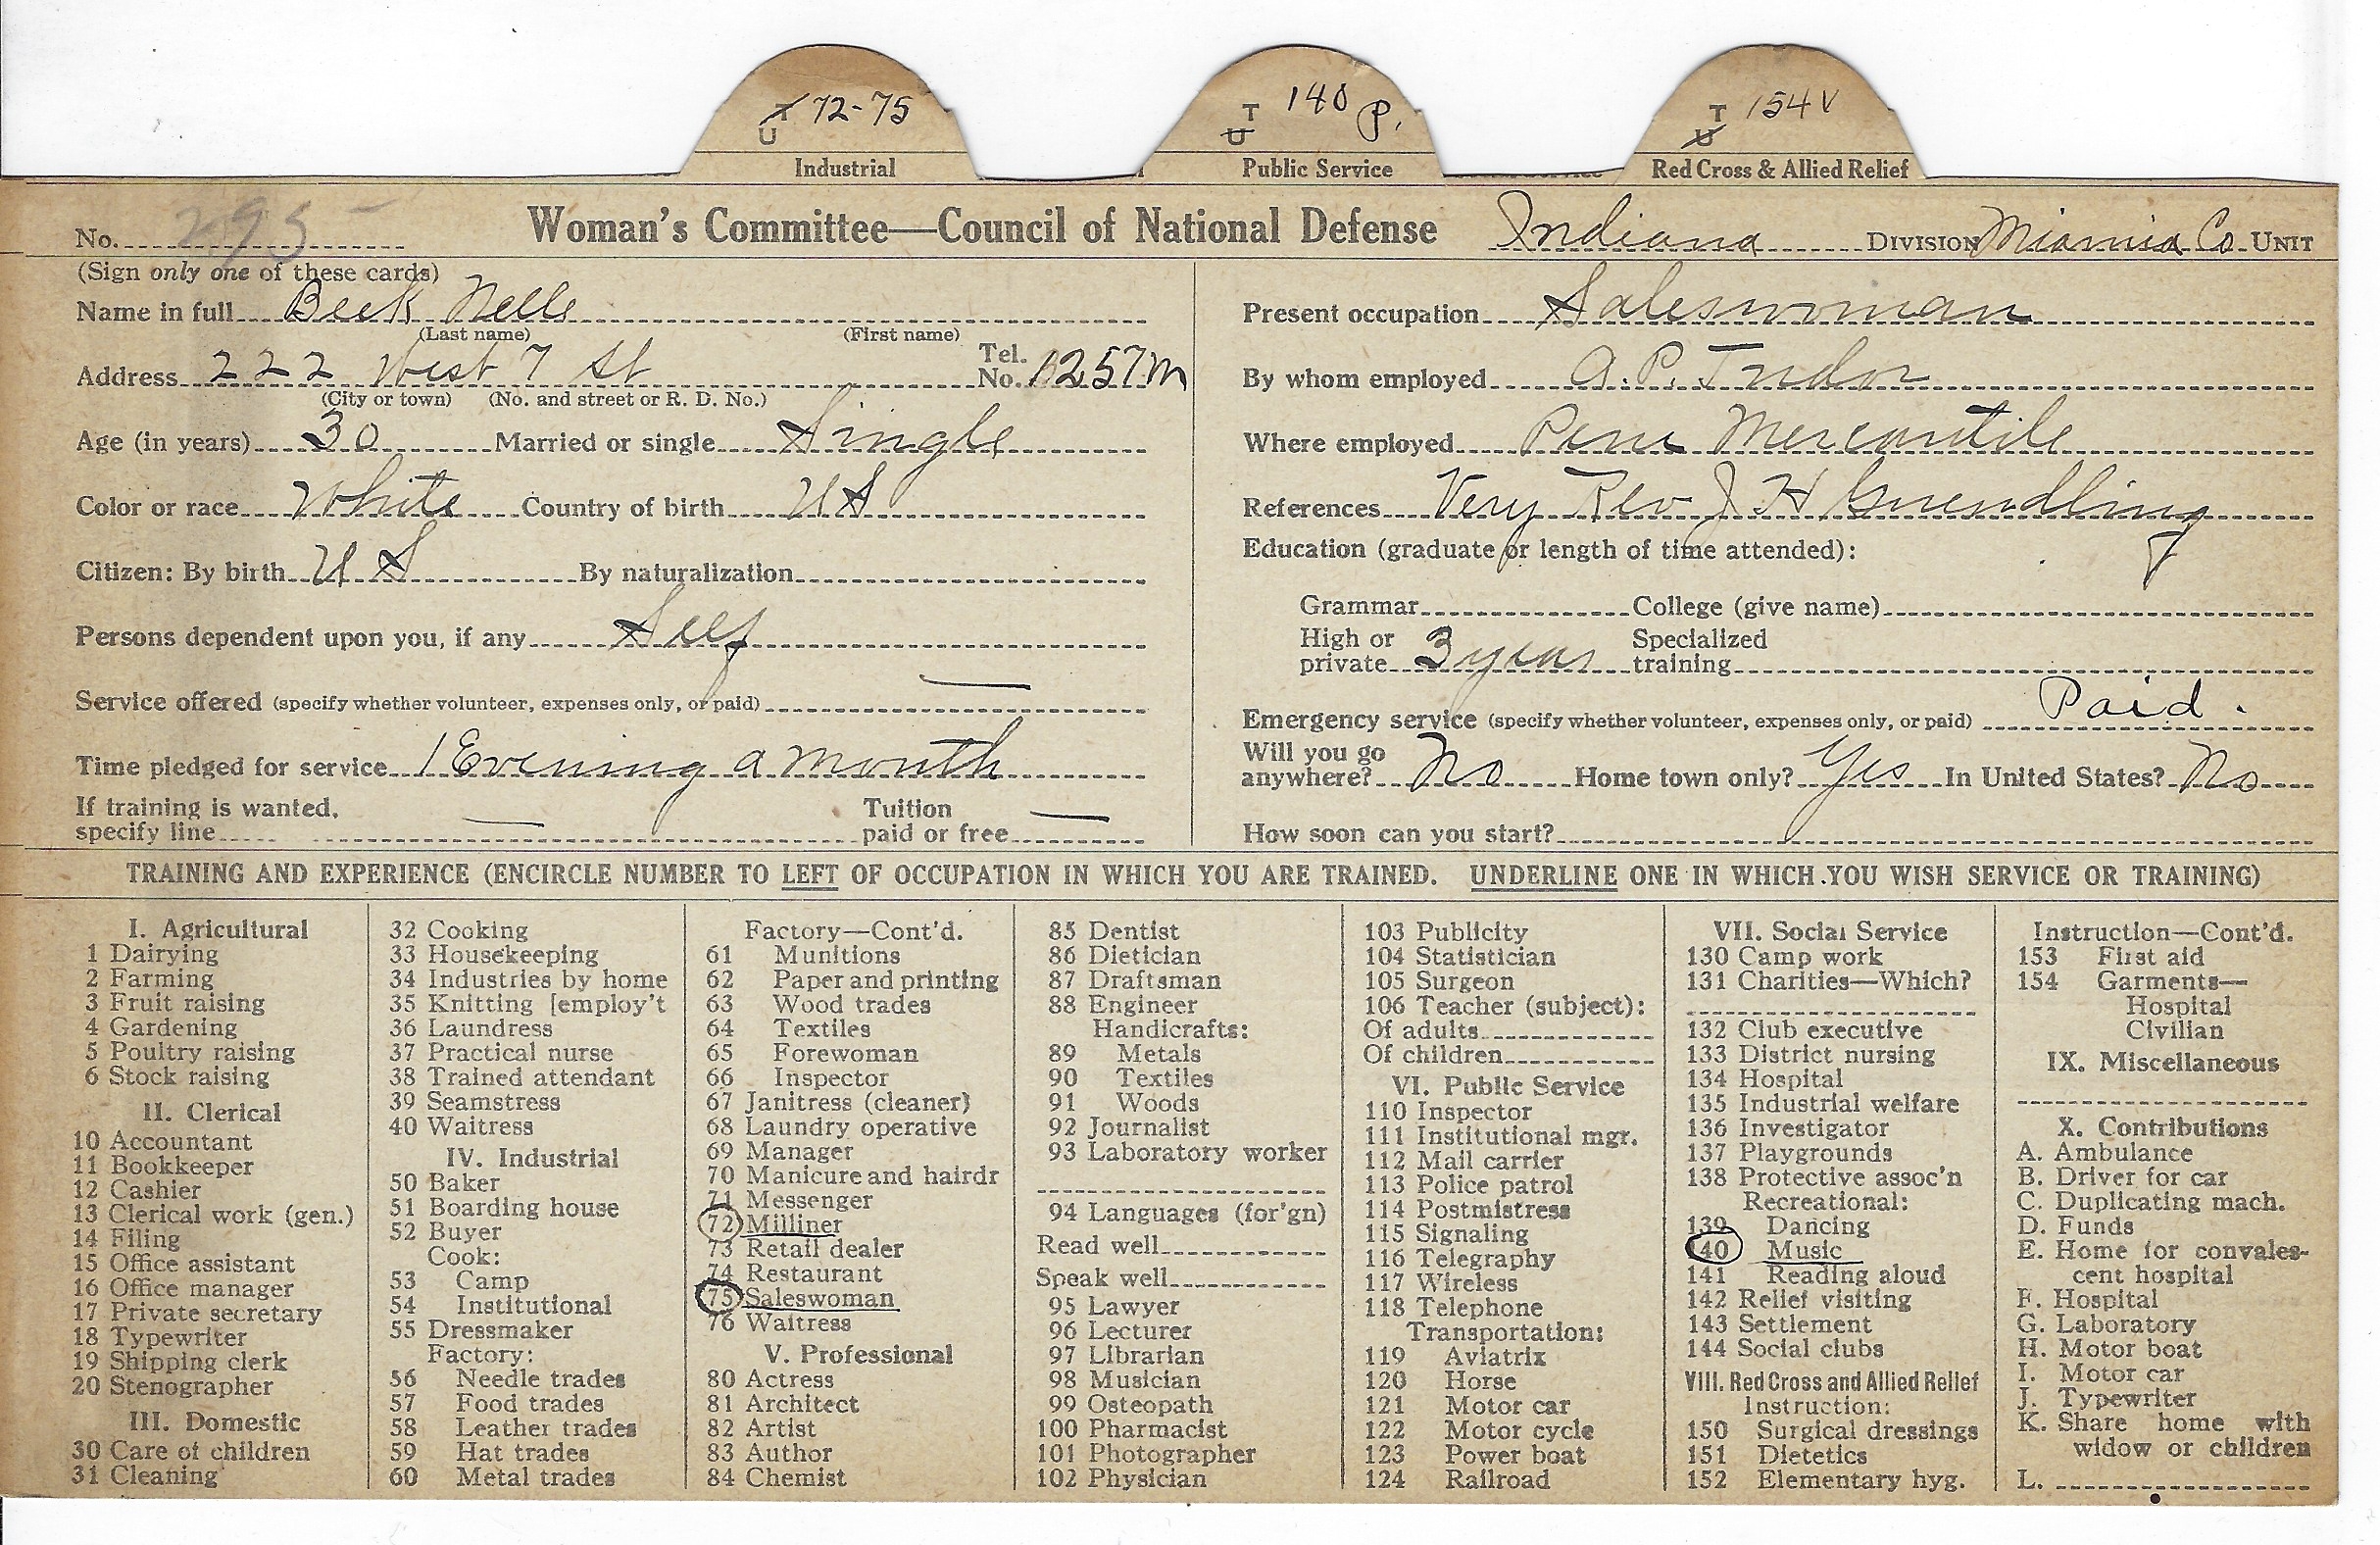 T U 72-75
Industrial
T U 140 P.
Public Service
T U 154 V
Red Cross & Allied Relief
No. 295
Woman's Committee—Council of National Defense
Indiana DIVISION Miamia Co UNIT
(Sign only one of these cards)
Name in full Beck Nelle
(Last name) (First name)
Address 222 West 7 St Tel. No. 1257M
(City or town) (No. and street or R. D. No.)
Age (in years) 30 Married or single Single
Color or race White Country of birth US
Citizen: By birth U S By naturalization
Persons dependent upon you, if any Self
Service offered (specify whether volunteer, expenses only, or paid) —
Time pledged for service 1 Evening a month
If training is wanted, specify line — Tuition paid or free —
Present occupation Saleswoman
By whom employed A. P. Tudor
Where employed Peru Mercantile
References Very Rev J H Guendling
Education (graduate or length of time attended):
Grammar College (give name)
High or private 3 years Specialized training
Emergency service (specify whether volunteer, expenses only, or paid) Paid.
Will you go anywhere? No Home town only? Yes In United States? No
How soon can you start?
TRAINING AND EXPERIENCE (ENCIRCLE NUMBER TO LEFT OF OCCUPATION IN WHICH YOU ARE TRAINED. UNDERLINE ONE IN WHICH YOU WISH SERVICE OR TRAINING)
I. Agricultural
1 Dairying
2 Farming
3 Fruit raising
4 Gardening
5 Poultry raising
6 Stock raising
II. Clerical
10 Accountant
11 Bookkeeper
12 Cashier
13 Clerical work (gen.)
14 Filing
15 Office assistant
16 Office manager
17 Private secretary
18 Typewriter
19 Shipping clerk
20 Stenographer
III. Domestic
30 Care of children
31 Cleaning
32 Cooking
33 Housekeeping
34 Industries by home
35 Knitting [employ't
36 Laundress
37 Practical nurse
38 Trained attendant
39 Seamstress
40 Waitress
IV. Industrial
50 Baker
51 Boarding house
52 Buyer
Cook:
53 Camp
54 Institutional
55 Dressmaker
Factory:
56 Needle trades
57 Food trades
58 Leather trades
59 Hat trades
60 Metal trades
Factory—Cont'd.
61 Munitions
62 Paper and printing
63 Wood trades
64 Textiles
65 Forewoman
66 Inspector
67 Janitress (cleaner)
68 Laundry operative
69 Manager
70 Manicure and hairdr
71 Messenger
72 Milliner
73 Retail dealer
74 Restaurant
75 Saleswoman
76 Waitress
V. Professional
80 Actress
81 Architect
82 Artist
83 Author
84 Chemist
85 Dentist
86 Dietician
87 Draftsman
88 Engineer
Handicrafts:
89 Metals
90 Textiles
91 Woods
92 Journalist
93 Laboratory worker
94 Languages (for'gn)
Read well
Speak well
95 Lawyer
96 Lecturer
97 Librarian
98 Musician
99 Osteopath
100 Pharmacist
101 Photographer
102 Physician
103 Publicity
104 Statistician
105 Surgeon
106 Teacher (subject):
Of adults
Of children
VI. Public Service
110 Inspector
111 Institutional mgr.
112 Mail carrier
113 Police patrol
114 Postmistress
115 Signaling
116 Telegraphy
117 Wireless
118 Telephone
Transportation:
119 Aviatrix
120 Horse
121 Motor car
122 Motor cycle
123 Power boat
124 Railroad
VII. Social Service
130 Camp work
131 Charities—Which?
132 Club executive
133 District nursing
134 Hospital
135 Industrial welfare
136 Investigator
137 Playgrounds
138 Protective assoc'n
Recreational:
139 Dancing
140 Music
141 Reading aloud
142 Relief visiting
143 Settlement
144 Social clubs
VIII. Red Cross and Allied Relief
Instruction:
150 Surgical dressings
151 Dietetics
152 Elementary hyg.
Instruction—Cont'd.
153 First aid
154 Garments—
Hospital
Civilian
IX. Miscellaneous
X. Contributions
A. Ambulance
B. Driver for car
C. Duplicating mach.
D. Funds
E. Home for convales-
cent hospital
F. Hospital
G. Laboratory
H. Motor boat
I. Motor car
J. Typewriter
K. Share home with
widow or children
L.